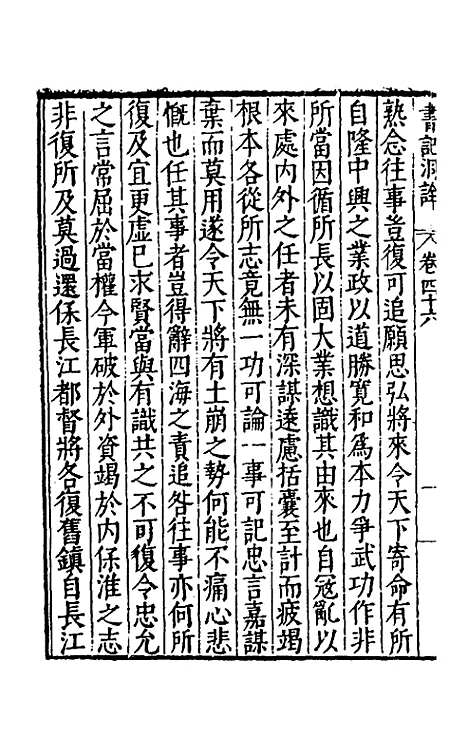 書記洞詮 卷四十六 一
熟念往事豈復可追願思弘將來令天下寄命有所
自隆中興之業政以道勝寬和為本力爭武功作非
所當因循所長以固大業想識其由來也自寇亂以
來處內外之任者未有深謀遠慮括囊至計而疲竭
根本各從所志竟無一功可論一事可記忠言嘉謀
棄而莫用遂令天下將有土崩之勢何能不痛心悲
慨也任其事者豈得辭四海之責追咎往事亦何所
復及宜更虛己求賢當與有識共之不可復令忠允
之言常屈於當權今軍破於外資竭於內保淮之志
非復所及莫過還保長江都督將各復舊鎮自長江